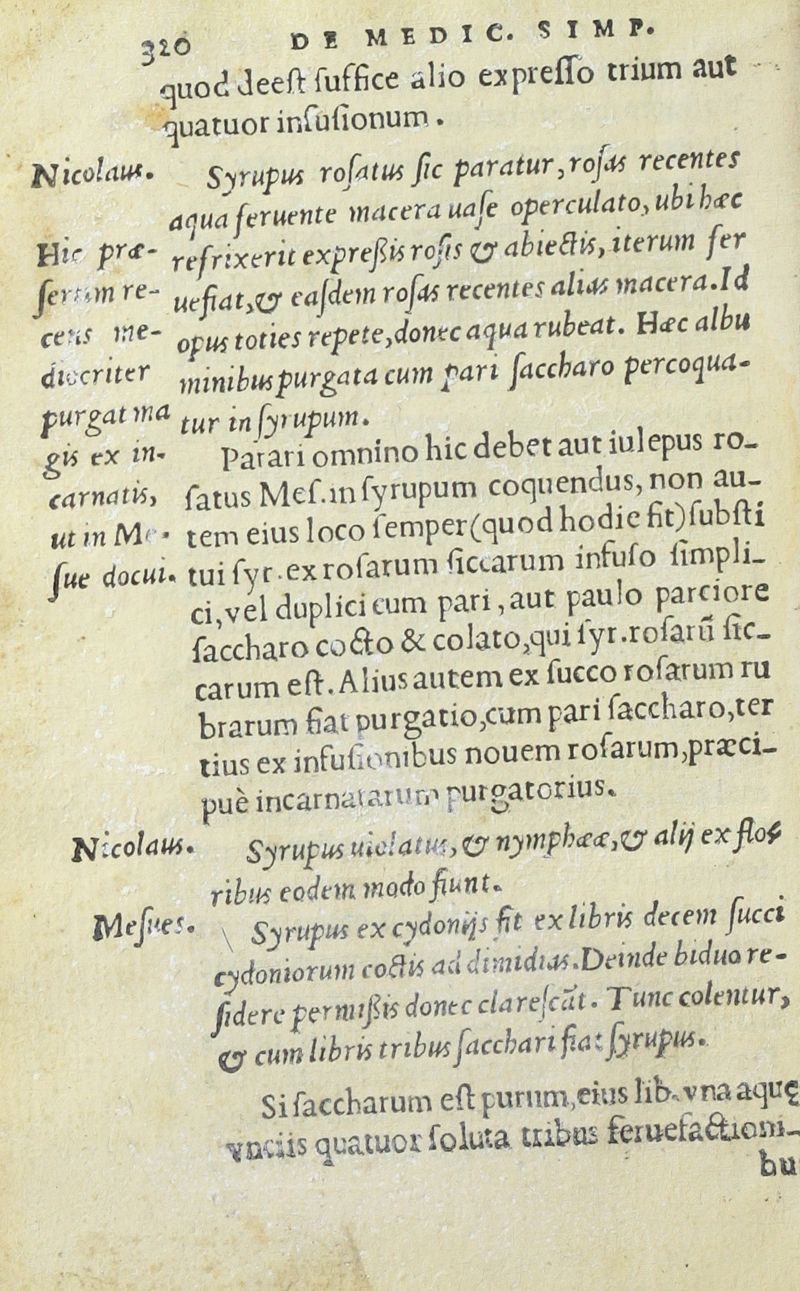 320 DE MEDIC. SIMP.
quod deeſt ſuffice alio expreſſo trium aut
quatuor infuſionum.
Nicolaus. Syrupus roſatus ſic paratur, roſas recentes
aqua feruente macera uaſe operculato, ubi hæc
refrixerit expreßis roſis & abiectis, iterum fer
uefiat, & eaſdem roſas recentes alias macera. Id
opus toties repete, donec aqua rubeat. Hæc albu
minibus purgata cum pari ſaccharo percoqua-
tur in ſyrupum.
Hic præ-
ſertim re-
cens me-
diocriter
purgat ma
gis ex in-
carnatis,
ut in Me-
ſue docui.
Parari omnino hic debet aut iulepus ro-
ſatus Meſ. in ſyrupum coquendus, non au-
tem eius loco ſemper (quod hodie fit) ſubſti
tui ſyr. ex roſarum ſiccarum infuſo ſimpli-
ci, vel duplici cum pari, aut paulo parciore
ſaccharo cocto & colato, qui ſyr. roſarū ſic-
carum eſt. Alius autem ex ſucco roſarum ru
brarum fiat purgatio, cum pari ſaccharo, ter
tius ex infuſionibus nouem roſarum, præci-
puè incarnatarum purgatorius.
Nicolaus. Syrupus uiolatus, & nymphææ, & alij ex flo-
ribus eodem modo fiunt.
Meſues. Syrupus ex cydonijs fit ex libris decem ſucci
cydoniorum coctis ad dimidias. Deinde biduo re-
ſidere permißis donec clareſcāt. Tunc colentur,
& cum libris tribus ſacchari fiat ſyrupus.
Si ſaccharum eſt purum, eius lib. vna aquę
vnciis quatuor ſoluta tribus feruefactioni-
bu